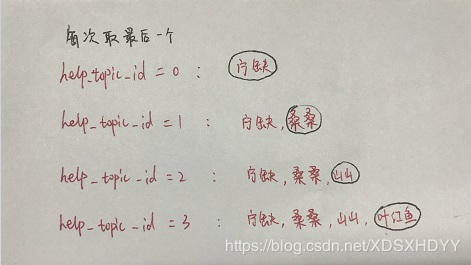 每次取最后一个
help_topic_id = 0 : 宁缺
help_topic_id = 1 : 宁缺, 桑桑
help_topic_id = 2 : 宁缺, 桑桑, 山山
help_topic_id = 3 : 宁缺, 桑桑, 山山, 叶红鱼
https://blog.csdn.net/XDSXHDYY